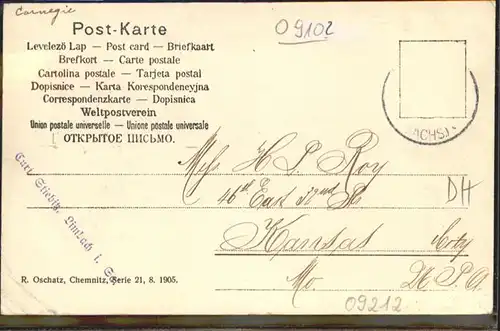 Carnegie
09102
Post-Karte
Levelező Lap — Post card — Briefkaart
Brefkort — Carte postale
Cartolina postale — Tarjeta postal
Dopisnice — Karta Korespondencyjna
Correspondenzkarte — Dopisnica
Weltpostverein
Union postale universelle — Unione postale universale
ОТКРЫТОЕ ПИСЬМО.
ACHS).
Curt Stiebitz, Limbach i. Sa.
H. P. Roy
46th East 32nd St
DH
Kansas City
Mo. U.S.A.
R. Oschatz, Chemnitz, Serie 21, 8. 1905.
09212